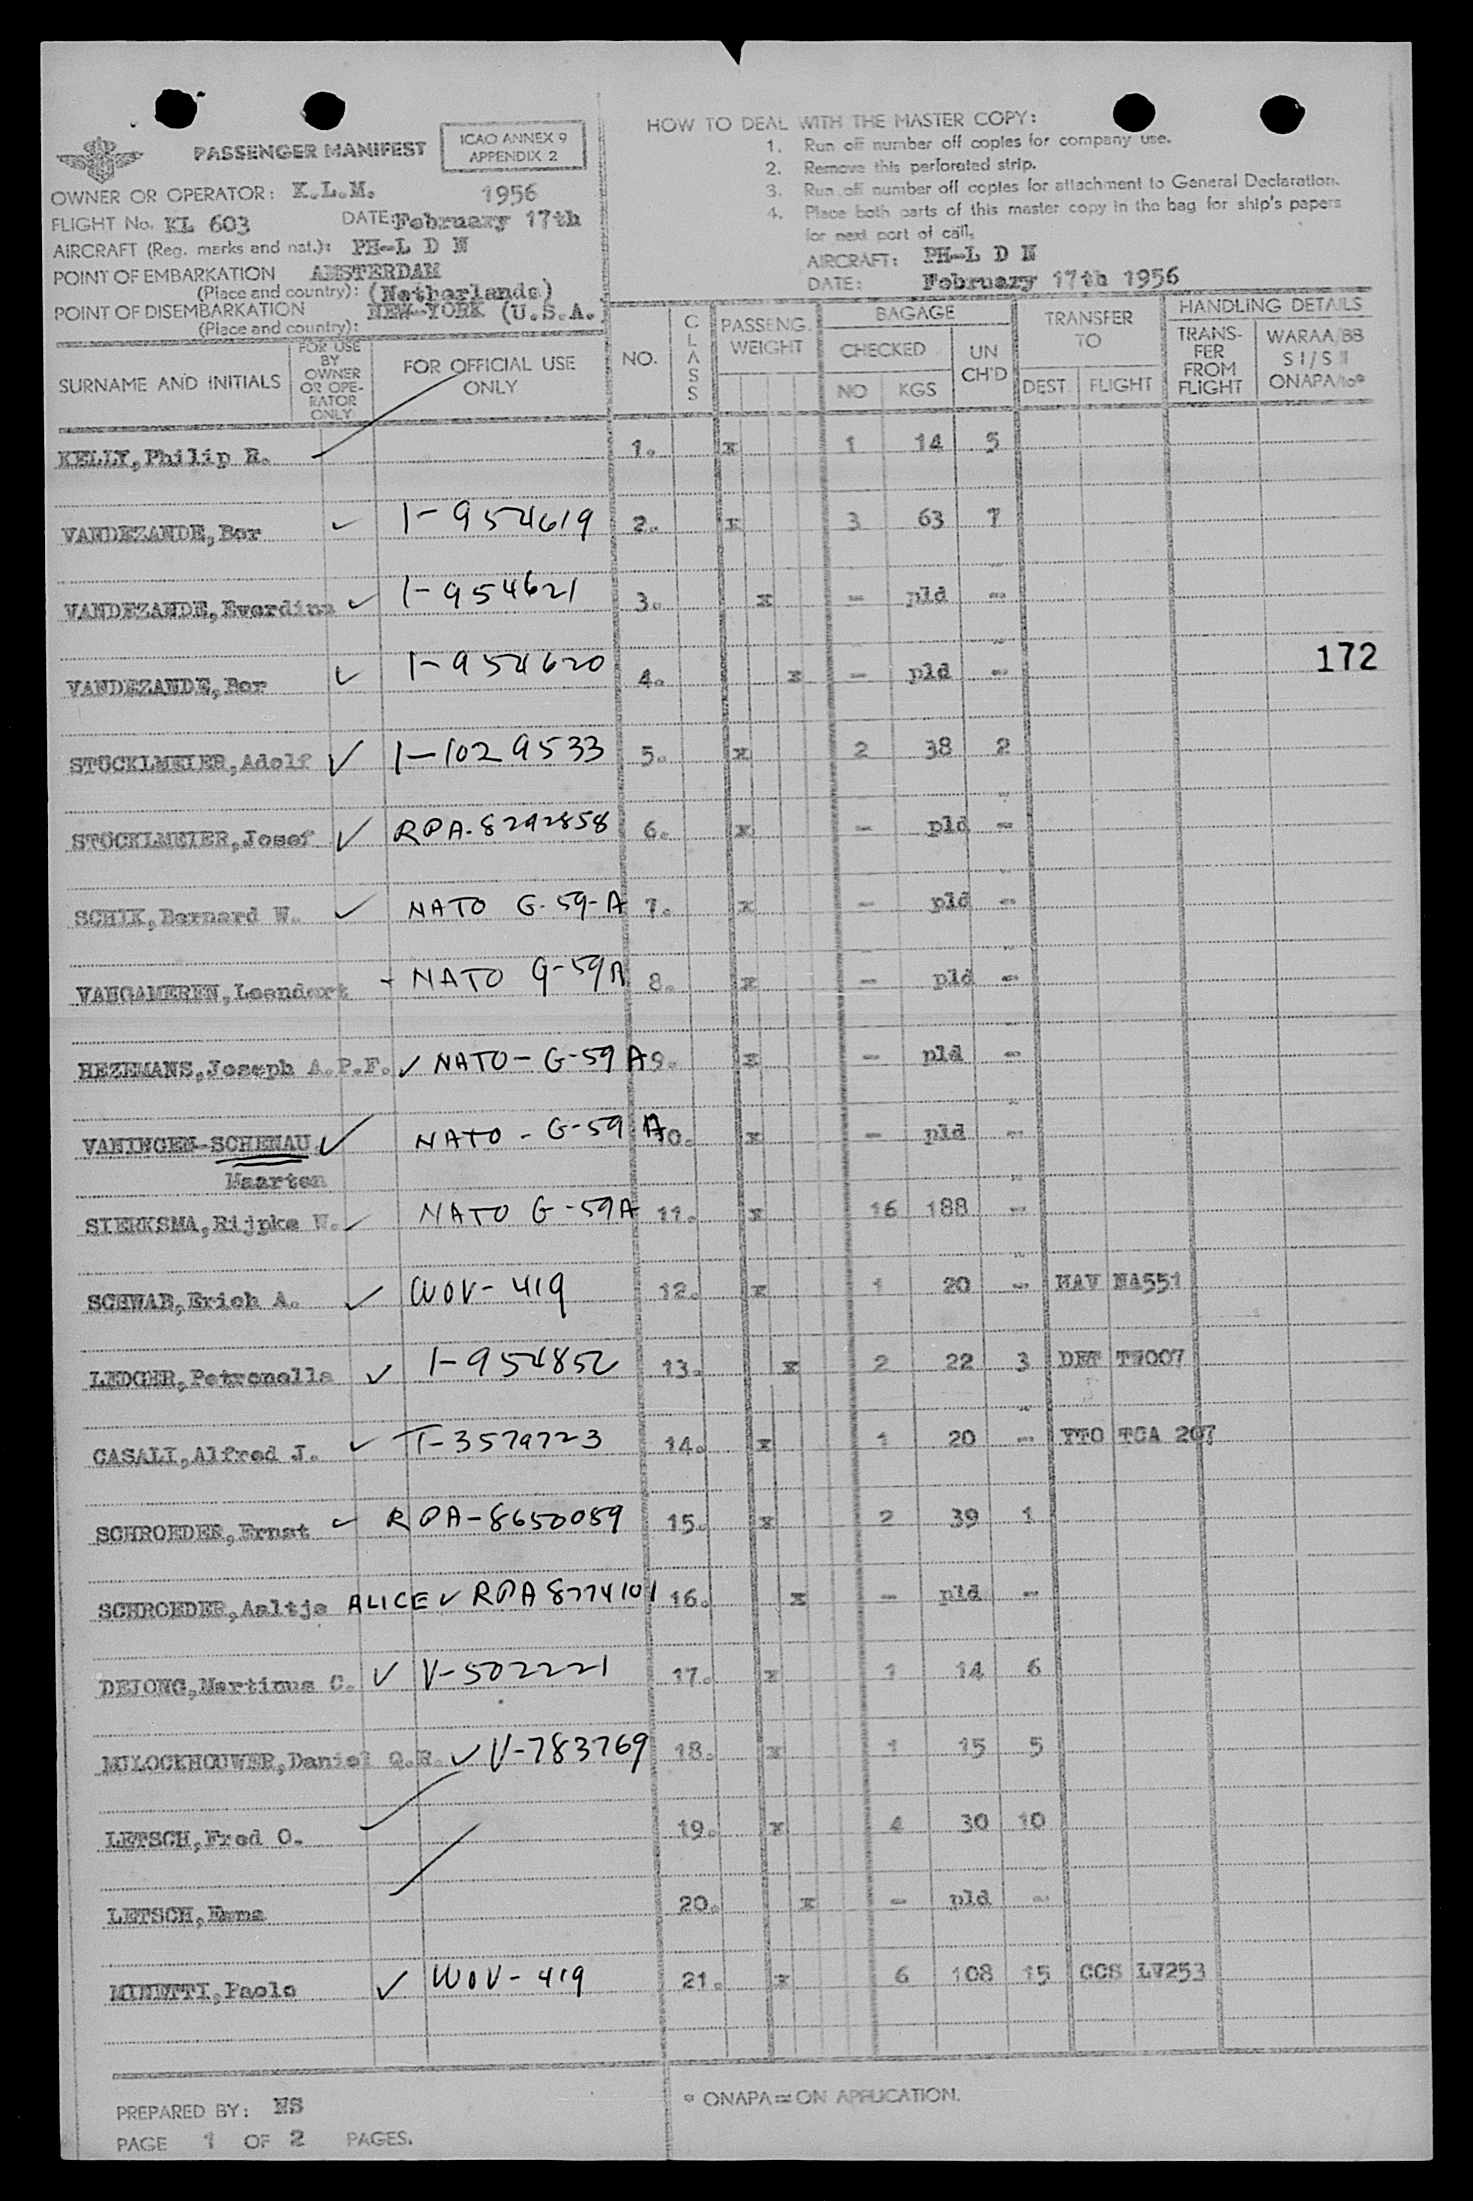 PASSENGER MANIFEST
ICAO ANNEX 9
APPENDIX 2
OWNER OR OPERATOR: K.L.M. 1956
FLIGHT No. KL 603 DATE: February 17th
AIRCRAFT (Reg. marks and nat.): PH-L D N
POINT OF EMBARKATION AMSTERDAM
(Place and country): (Netherlands)
POINT OF DISEMBARKATION NEW-YORK (U.S.A.)
(Place and country):
HOW TO DEAL WITH THE MASTER COPY:
1. Run off number off copies for company use.
2. Remove this perforated strip.
3. Run off number off copies for attachment to General Declaration.
4. Place both parts of this master copy in the bag for ship's papers
for next port of call.
AIRCRAFT: PH-L D N
DATE: February 17th 1956
SURNAME AND INITIALS
FOR USE BY OWNER OR OPE-RATOR ONLY
FOR OFFICIAL USE ONLY
NO.
CLASS
PASSENG. WEIGHT
BAGAGE
CHECKED
NO KGS
UN CH'D
TRANSFER TO
DEST. FLIGHT
HANDLING DETAILS
TRANS-FER FROM FLIGHT
ONAPA/to*
KELLY,Philip R. 1. x 1 14 5
VANDEZANDE,Bor ✓ 1-954619 2. x 3 63 7
VANDEZANDE,Everdina ✓ 1-954621 3. x - pld -
VANDEZANDE,Bor ✓ 1-954620 4. x - pld -
172
STOCKLMEIER,Adolf ✓ 1-1029533 5. x 2 38 2
STOCKLMEIER,Josef ✓ RPA-8292858 6. x - pld -
SCHIK,Bernard W. ✓ NATO G-59-A 7. x - pld -
VANGAMEREN,Leendert - NATO G-59A 8. x - pld -
HEZEMANS,Joseph A.P.F. ✓ NATO-G-59 A 9. x - pld -
VANINGEN-SCHENAU, ✓ NATO-G-59 A 10. x - pld -
Maarten
SIERKSMA,Rijpke W. ✓ NATO G-59A 11. x 16 188 -
SCHWAB,Erich A. ✓ WOV-419 12. x 1 20 - HAV NA551
LEDGER,Petronella ✓ 1-954852 13. x 2 22 3 DET TW007
CASALI,Alfred J. ✓ T-3579723 14. x 1 20 - YTO TCA 207
SCHROEDER,Ernst ✓ RPA-8650059 15. x 2 39 1
SCHROEDER,Aaltje ALICE ✓ RPA 8774101 16. x - pld -
DEJONG,Martinus C. ✓ V-502221 17. x 1 14 6
MIJLOCKHOUWER,Daniel Q.R. ✓ V-783769 18. x 1 15 5
LETSCH,Fred O. 19. x 4 30 10
LETSCH,Emma 20. x - pld -
MINETTI,Paolo ✓ WOV-419 21. x 6 108 15 CCS LV253
* ONAPA = ON APPLICATION.
PREPARED BY: NS
PAGE 1 OF 2 PAGES.